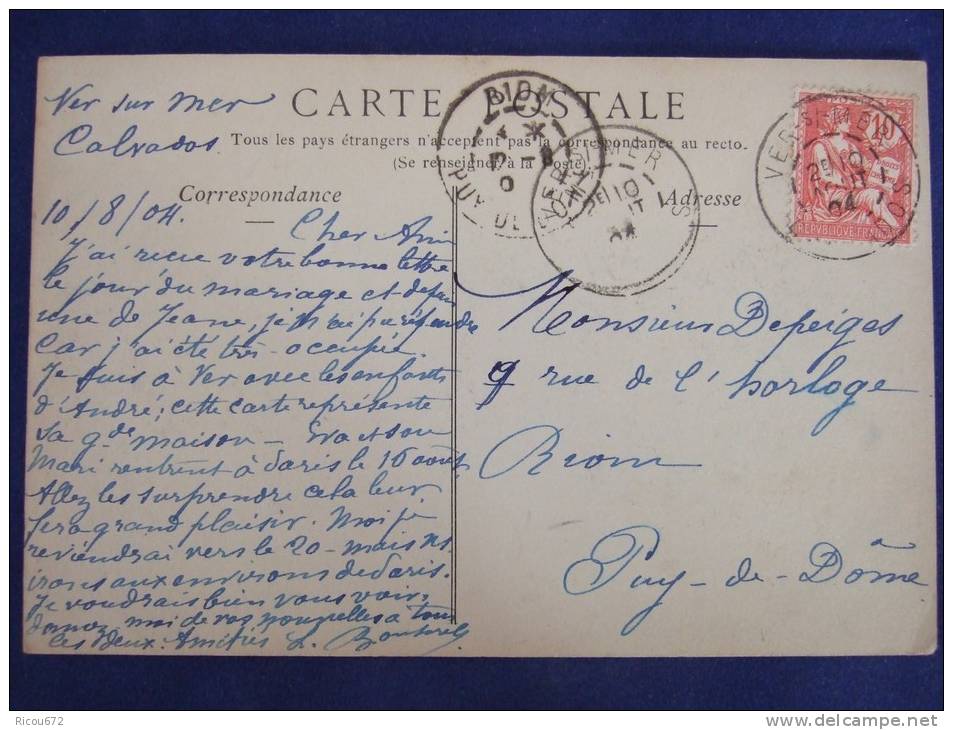 Ver sur Mer
Calvados
CARTE POSTALE
Tous les pays étrangers n'acceptent pas la correspondance au recto.
(Se renseigner à la poste)
Correspondance
Adresse
10/8/04.
Cher Ami
J'ai reçue votre bonne lettre
le jour du mariage et depuis
une de Jeane, je n'ai pu répondre
Car j'ai été très-occupée.
Je suis à Ver avec les enfants
d'André; cette carte représente
sa gde maison - Eva et son
Mari rentrent à Paris le 16 août
Allez les surprendre cela leur
fera grand plaisir. Moi je
reviendrai vers le 20 - mais ns
irons aux environs de Paris.
Je voudrais bien vous voir,
donnez moi de vos nouvelles à tous
les deux. Amitiés L.
Monsieur Depeiges
9 rue de l'horloge
Riom
Puy-de-Dôme
RIOM
PUY DE
VER-S-MER
10
04
VER-S-MER
10
04
10
REPUBLIQUE FRANÇAISE
Ricou672
www.delcampe.net